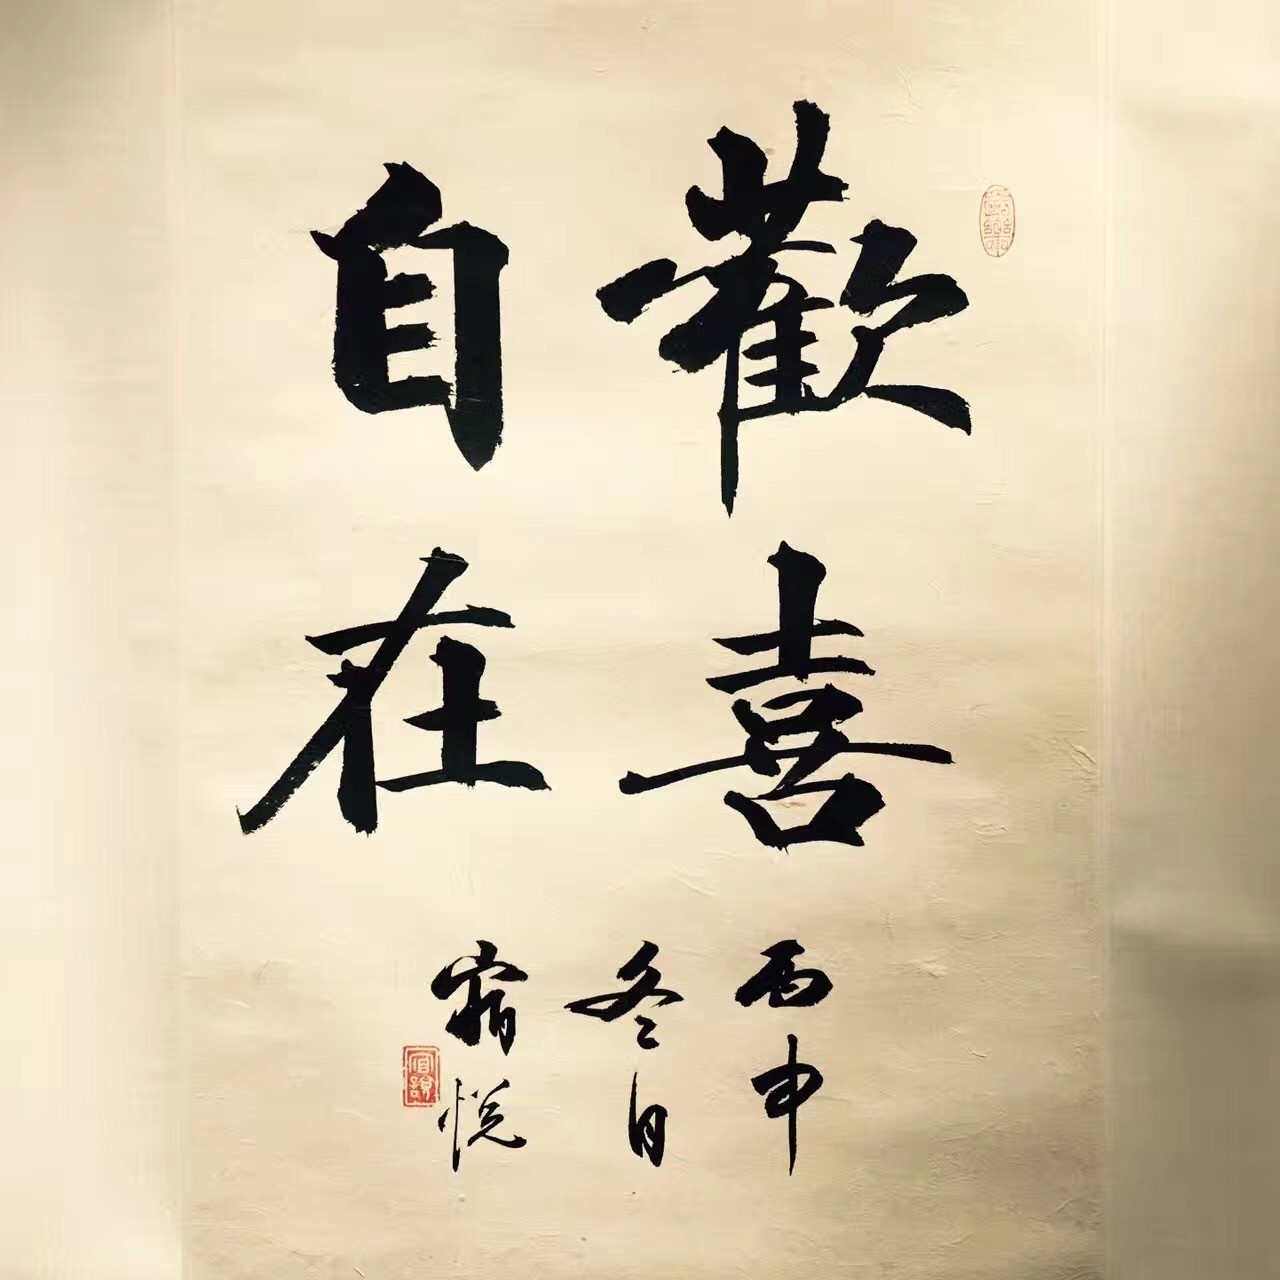 歡喜
自在
丙申
冬月
宿悅